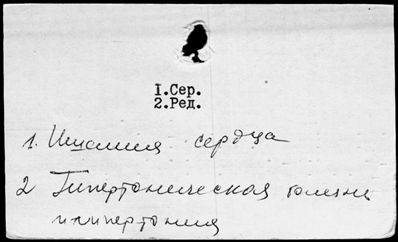 I.Сер.
2.Ред.
1. Ишемия сердца
2 Гипертоническая болезнь
и гипертония